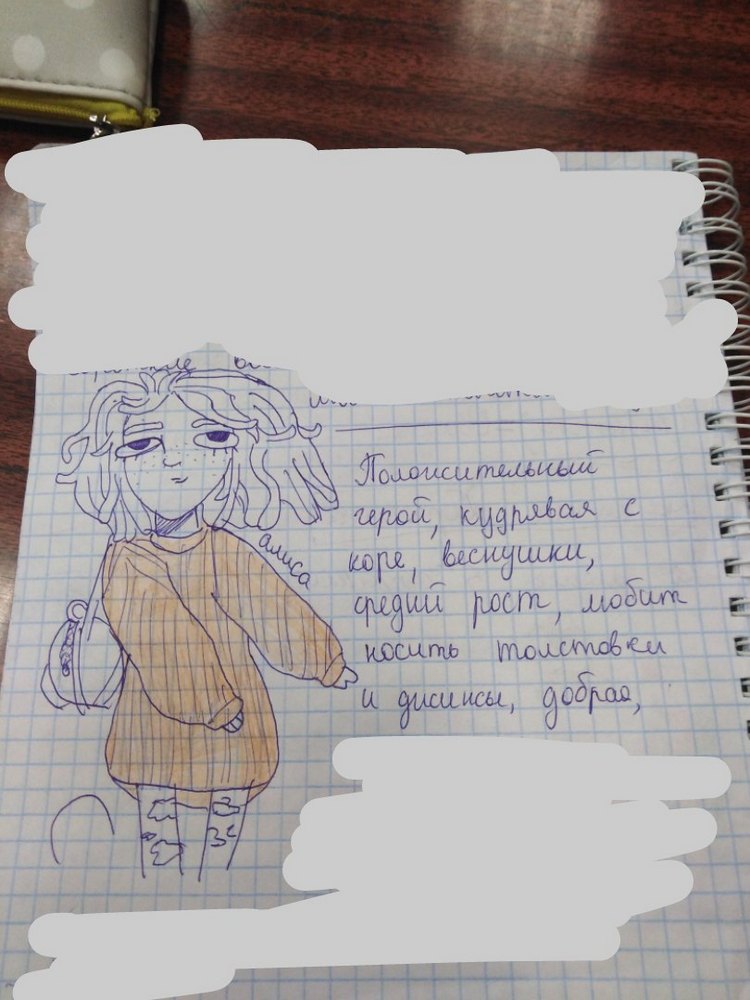 Положительный
герой, кудрявая с
алиса
коре, веснушки,
средий рост, любит
носить толстовки
и джинсы, добрая,